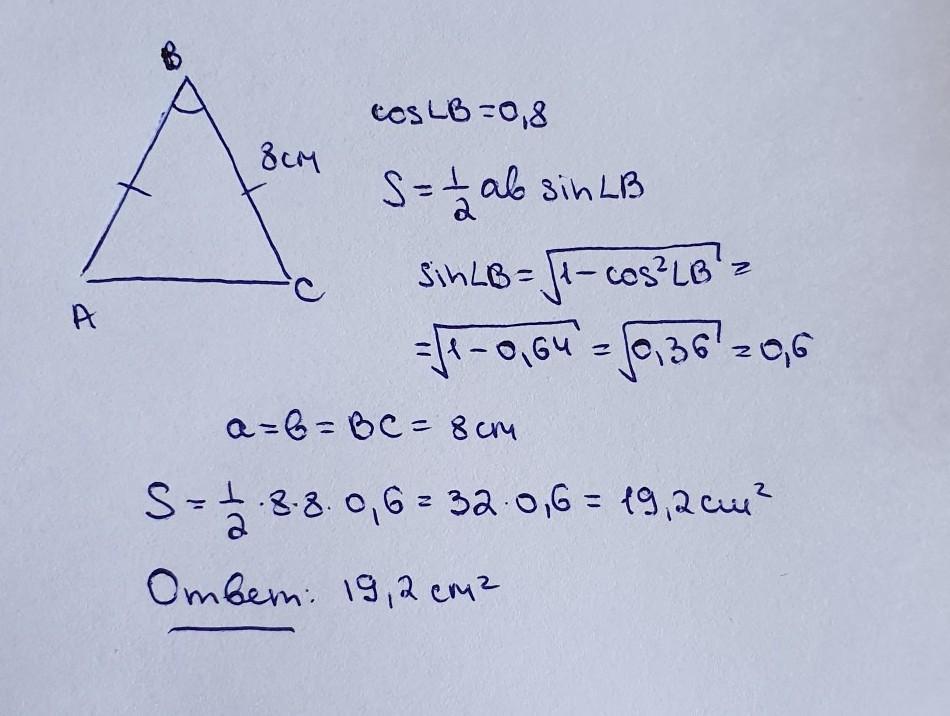 B
cos∠B=0,8
8см
S=1/2 ab sin∠B
sin∠B=√(1-cos²∠B)=
A
C
=√(1-0,64)=√(0,36)=0,6
a=b=BC=8см
S=1/2·8·8·0,6=32·0,6=19,2см²
Ответ: 19,2 см²